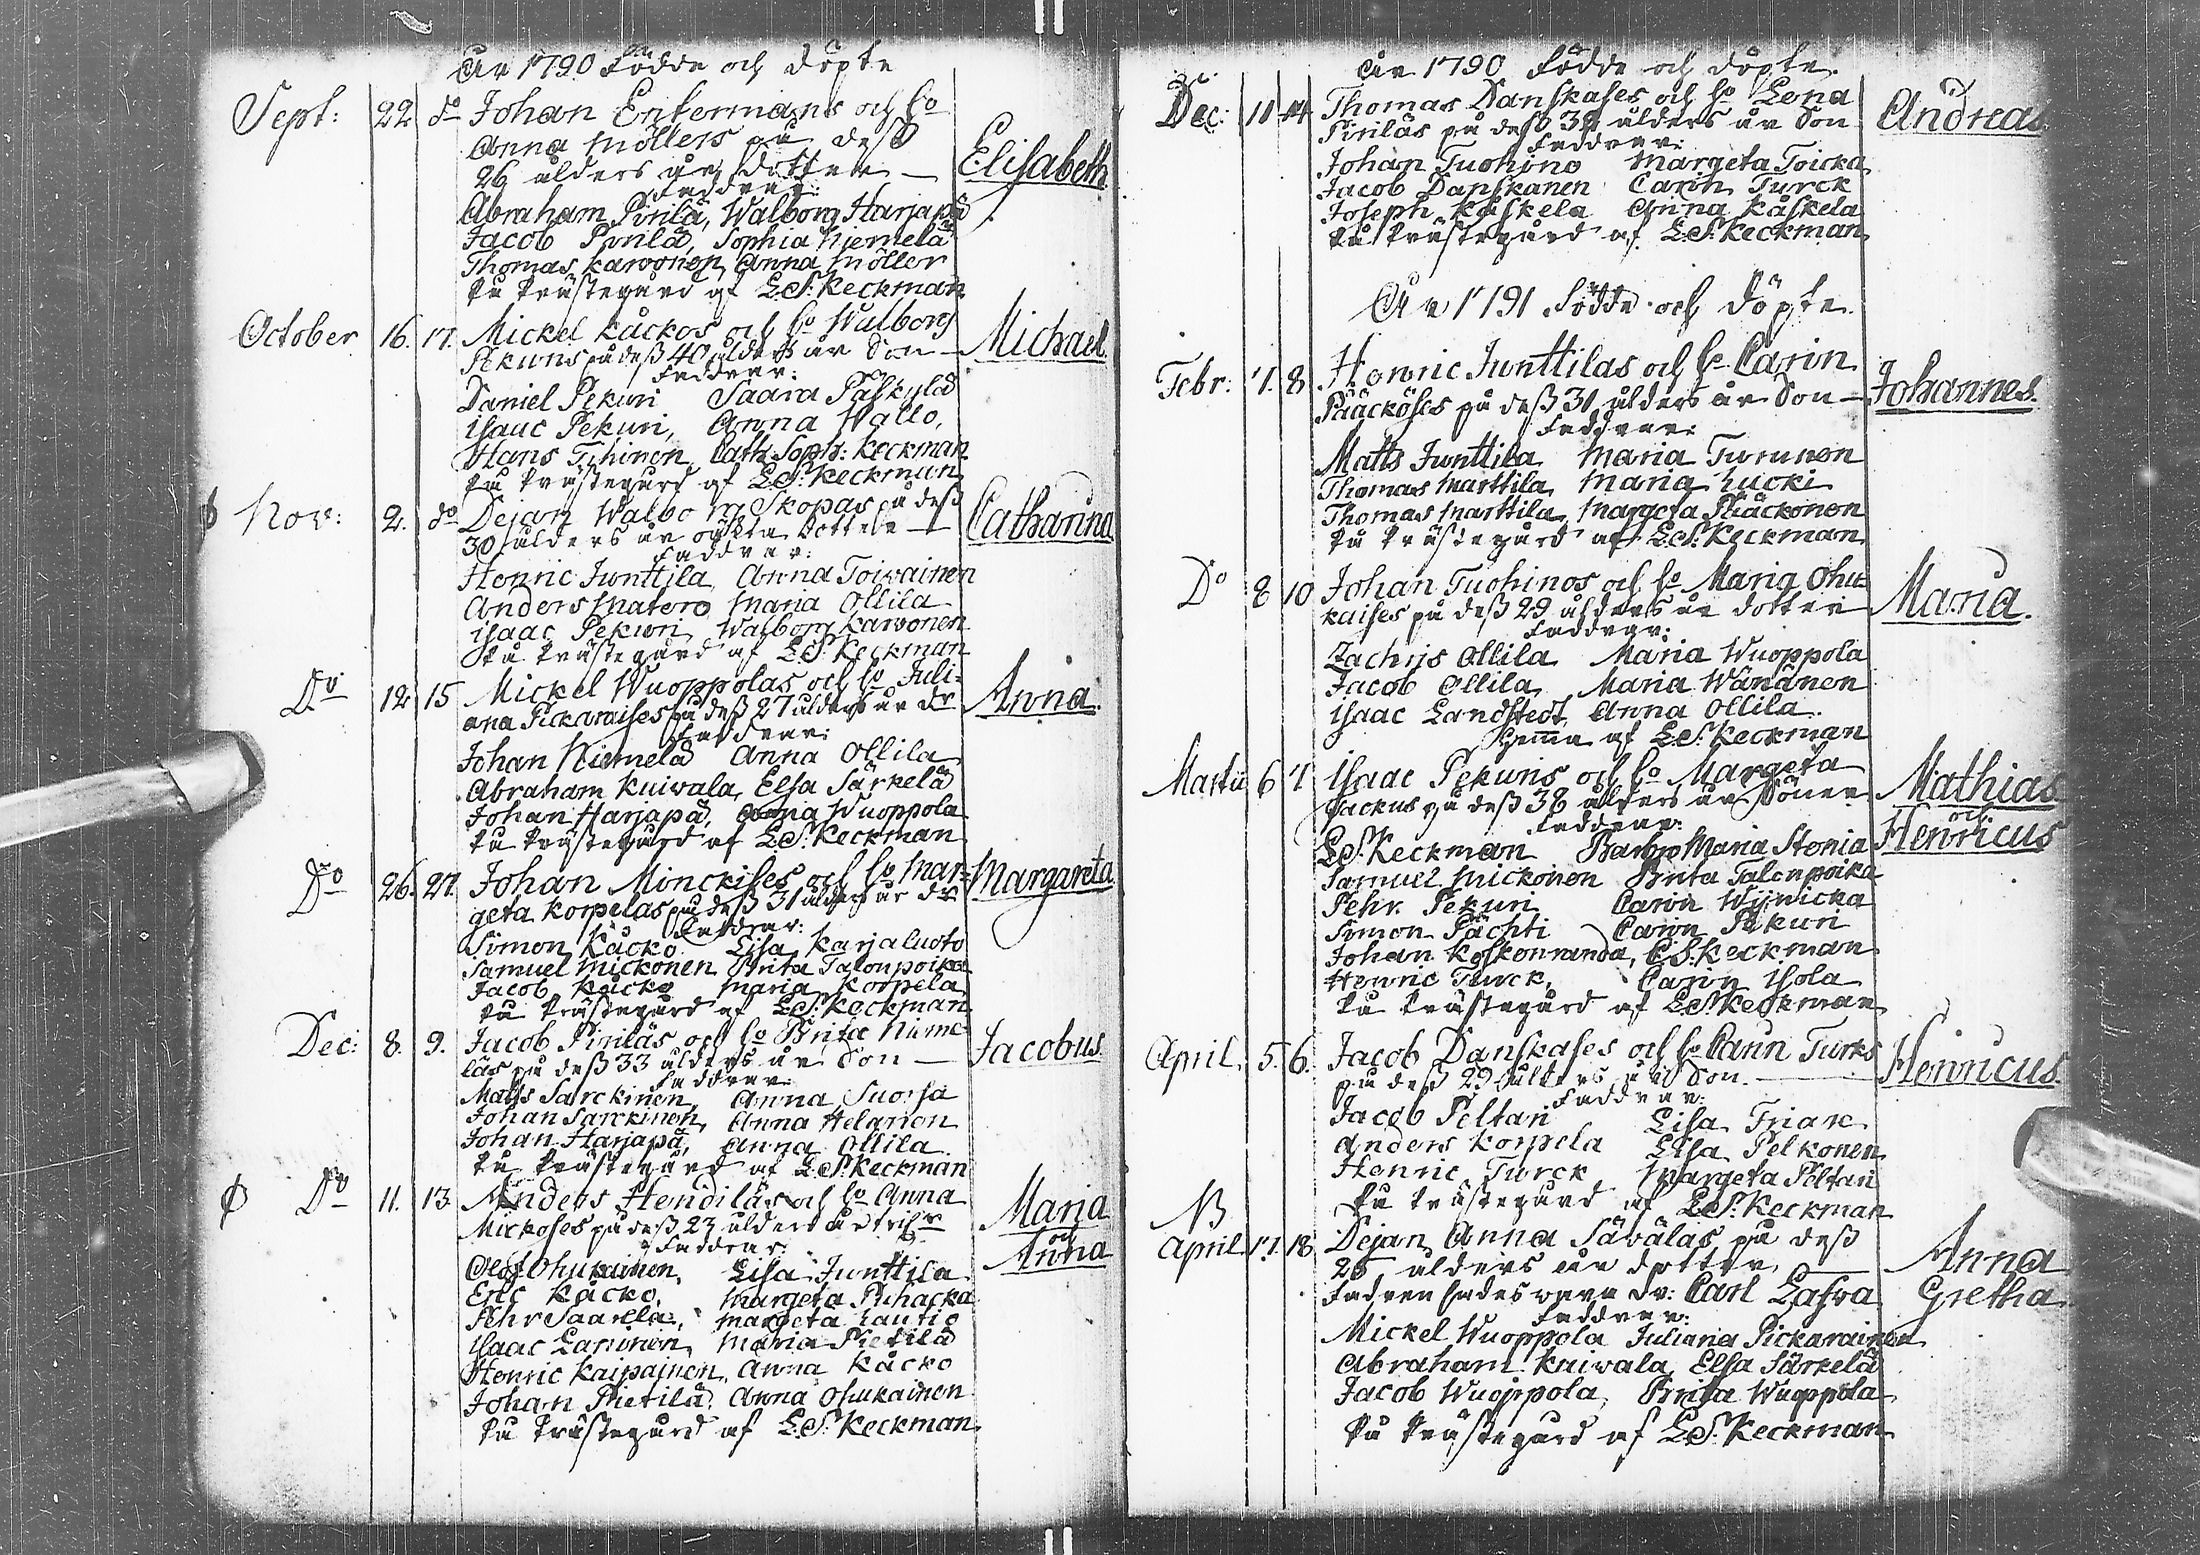 År 1790 födde och döpte
Sept: 22 do Johan Enkermans och ho
Anna Möllers på dess
26 ålders år, dotter — Elisabeth
Faddrar:
Abraham Pirilä, Walborg Harjapä
Jacob Pirilä, Sophia Niemelä
Thomas Karvonen, Anna Möller
på Prästegård af E.S. Keckman
October 16. 17. Mickel Kåckos och ho Walborg
Pekuris på dess 40 ålders år Son — Michael
Faddrar:
Daniel Pekuri Saara Pä̈s̈kylä
Isaac Pekuri, Anna Wallo,
Hans Tihinen, Cath. Soph: Keckman
på Prästegård af E.S. Keckman
Nov: 2. do Dejan Walborg Skopas på dess
30 ålders år oägta dotter — Catharina
Faddrar:
Henric Junttila, Anna Toivainen
Anders Matero Maria Ollila
Isaac Pekuri Walborg Karvonen
på Prästegård af E.S. Keckman
Do 12 15 Mickel Wuoppolas och ho Juli-
ana Pickaraises på dess 27 ålders år dr Anna
Faddrar:
Johan Niemelä Anna Ollila
Abraham Kuivala, Elsa Särkelä
Johan Harjapä, Wuoppola
på Prästegård af E.S. Keckman
Do 26. 27. Johan Minckises och ho Mar-
geta Korpelas på dess 31 ålders år dr Margareta
Faddrar:
Simon Kåcko Lisa Karjaluoto
Samuel Mickonen Brita Talonpoika
Jacob Kåcko Maria Korpela
på Prästegård af E.S. Keckman
Dec: 8. 9. Jacob Piriläs och ho Brita Nieme-
läs på dess 33 ålders år Son — Jacobus
Faddrar:
Matts Sarckinen, Anna Suorsa
Johan Sarckinen, Anna Helanen
Johan Harjapä, Anna Ollila
på Prästegård af E.S. Keckman
Do 11. 13 Anders Hendiläs och ho Anna Maria
Mickoses på dess 23 ålders år och
Faddrar: Anna
Olof Ohukainen, Lisa Junttila
Eric Kåcko, Margeta Puhacka
Pehr Saarela, Margeta Lautio
Isaac Larinen, Maria Pietilä
Henric Kaipainen, Anna Kåcko
Johan Pietilä, Anna Ohukainen
på Prästegård af E.S. Keckman
År 1790 födde och döpte.
Dec: 11 14 Thomas Danskases och ho Lena
Piriläs på dess 38 ålders år Son Andreas
Faddrar:
Johan Tuohino Margeta Toicka
Jacob Danskanen Carin Turck
Joseph Kåskela Anna Kåskela
på Prästegård af E.S. Keckman
År 1791 födde och döpte.
Febr: 7. 8 Henric Junttilas och ho Carin
Pääcköses på dess 31 ålders år Son — Johannes.
Faddrar:
Matts Junttila Maria Turunen
Thomas Marttila, Maria Lucki
Thomas Marttila, Margeta Pääckönen
på Prästegård af E.S. Keckman
Do 8 10 Johan Tuohinos och ho Maria Ohu-
kaises på dess 29 ålders år dotter Maria.
Faddrar:
Zachris Ollila Maria Wuoppola
Jacob Ollila, Maria Wänänen
Isaac Landstedt, Anna Ollila
Hema af E.S. Keckman
Martii 6 7 Isaac Pekuris och ho Margeta
Jackus på dess 38 ålders år Söner Mathias
Faddrar: och
E.S. Keckman Barbro Maria Stenia Henricus
Samuel Mickonen Brita Talonpoika
Pehr. Pekuri Carin Wijnicka
Simon Pächti Carin Pekuri
Johan Koskenranda, C.S. Keckman
Henric Turck, Carin Isola
på Prästegård af E.S. Keckman
April. 5. 6. Jacob Danskases och ho Carin Turks
på dess 29 ålders år Son. — Henricus.
Faddrar:
Jacob Peltari Lisa Friare
Anders Korpela Lisa Pelkonen
Henric Turck Margeta Peltari
på Prästegård af E.S. Keckman
NB
April 17. 18. Dejan Anna Säväläs på dess
25 ålders år dotter — Anna
Fadren sades vara dr: Carl Lasva Gretha
Faddrar:
Mickel Wuoppola Juliana Pickarainen
Abraham Kuivala, Elsa Särkelä
Jacob Wuoppola, Brita Wuoppola
på Prästegård af E.S. Keckman